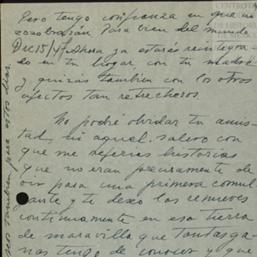 Pero tengo confianza en que no
zozobrarán para bien del mundo
Dic 15/47. Ahora ya estarás reintegra-
do en tu hogar, con tu madre
y quizás tambien con los otros
afectos tan retrecheros.
No podré olvidar tu amis-
tad, ni aquel salero con
que me referias historias
que no eran precisamente de
oir para una primera comul
gante y te deseo los renueves
continuamente en esa tierra
de maravilla que tantas ga-
nas tengo de conocer y que
tambien para estos dias